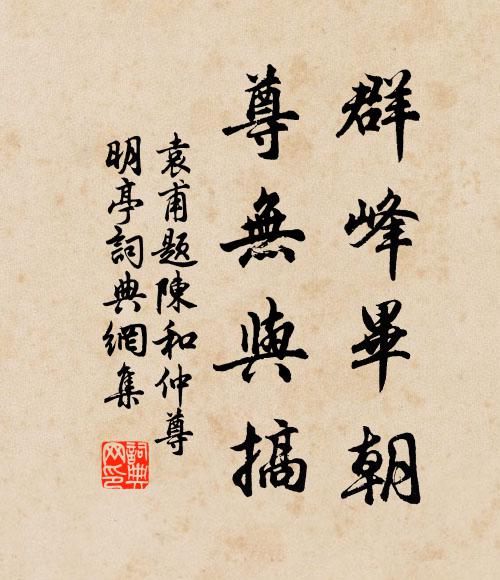 群峰畢朝
尊無與搞
袁甫題陳和仲尊
明亭詞典網集
詞典
网印